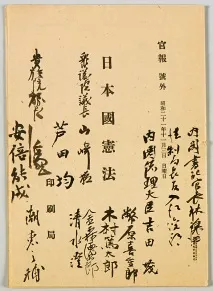 内閣書記官長 林譲治
法制局長官 入江俊郎
官報 號外 昭和二十一年十一月三日 日曜日
内閣總理大臣 吉田茂
幣原喜重郎
木村篤太郎
日本國憲法
金森德次郎
清水澄
衆議院議長 山崎猛
芦田均
印刷局
安倍能成
潮惠之輔